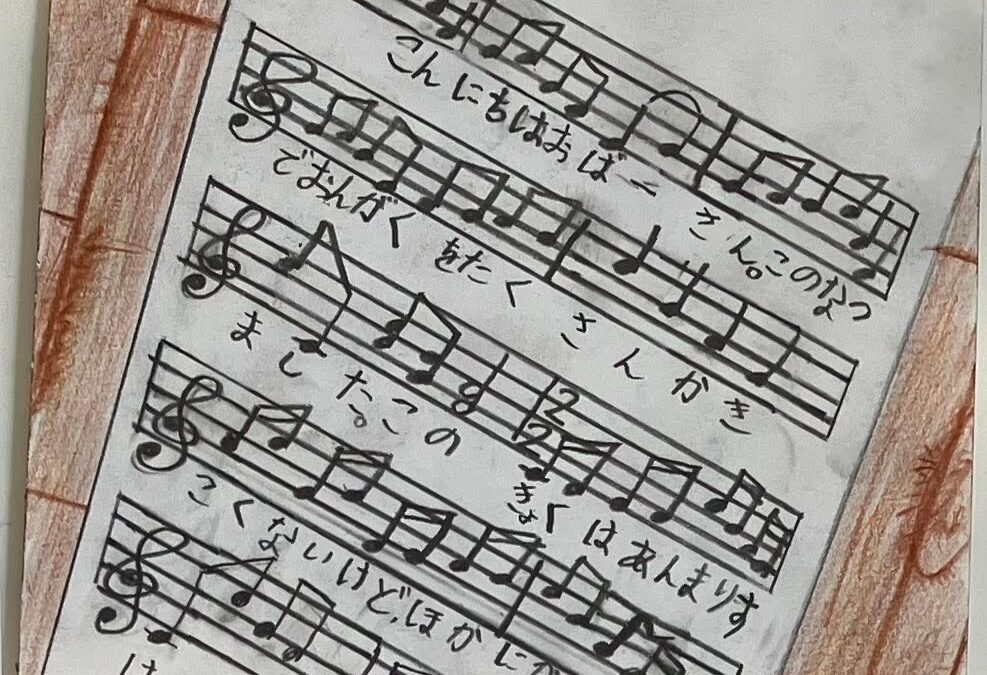 こんにちはおばーさん。このなつ
でおんがくをたくさんかき
ました。このきょくはあんまりす
ごくないけど、ほかにか
は